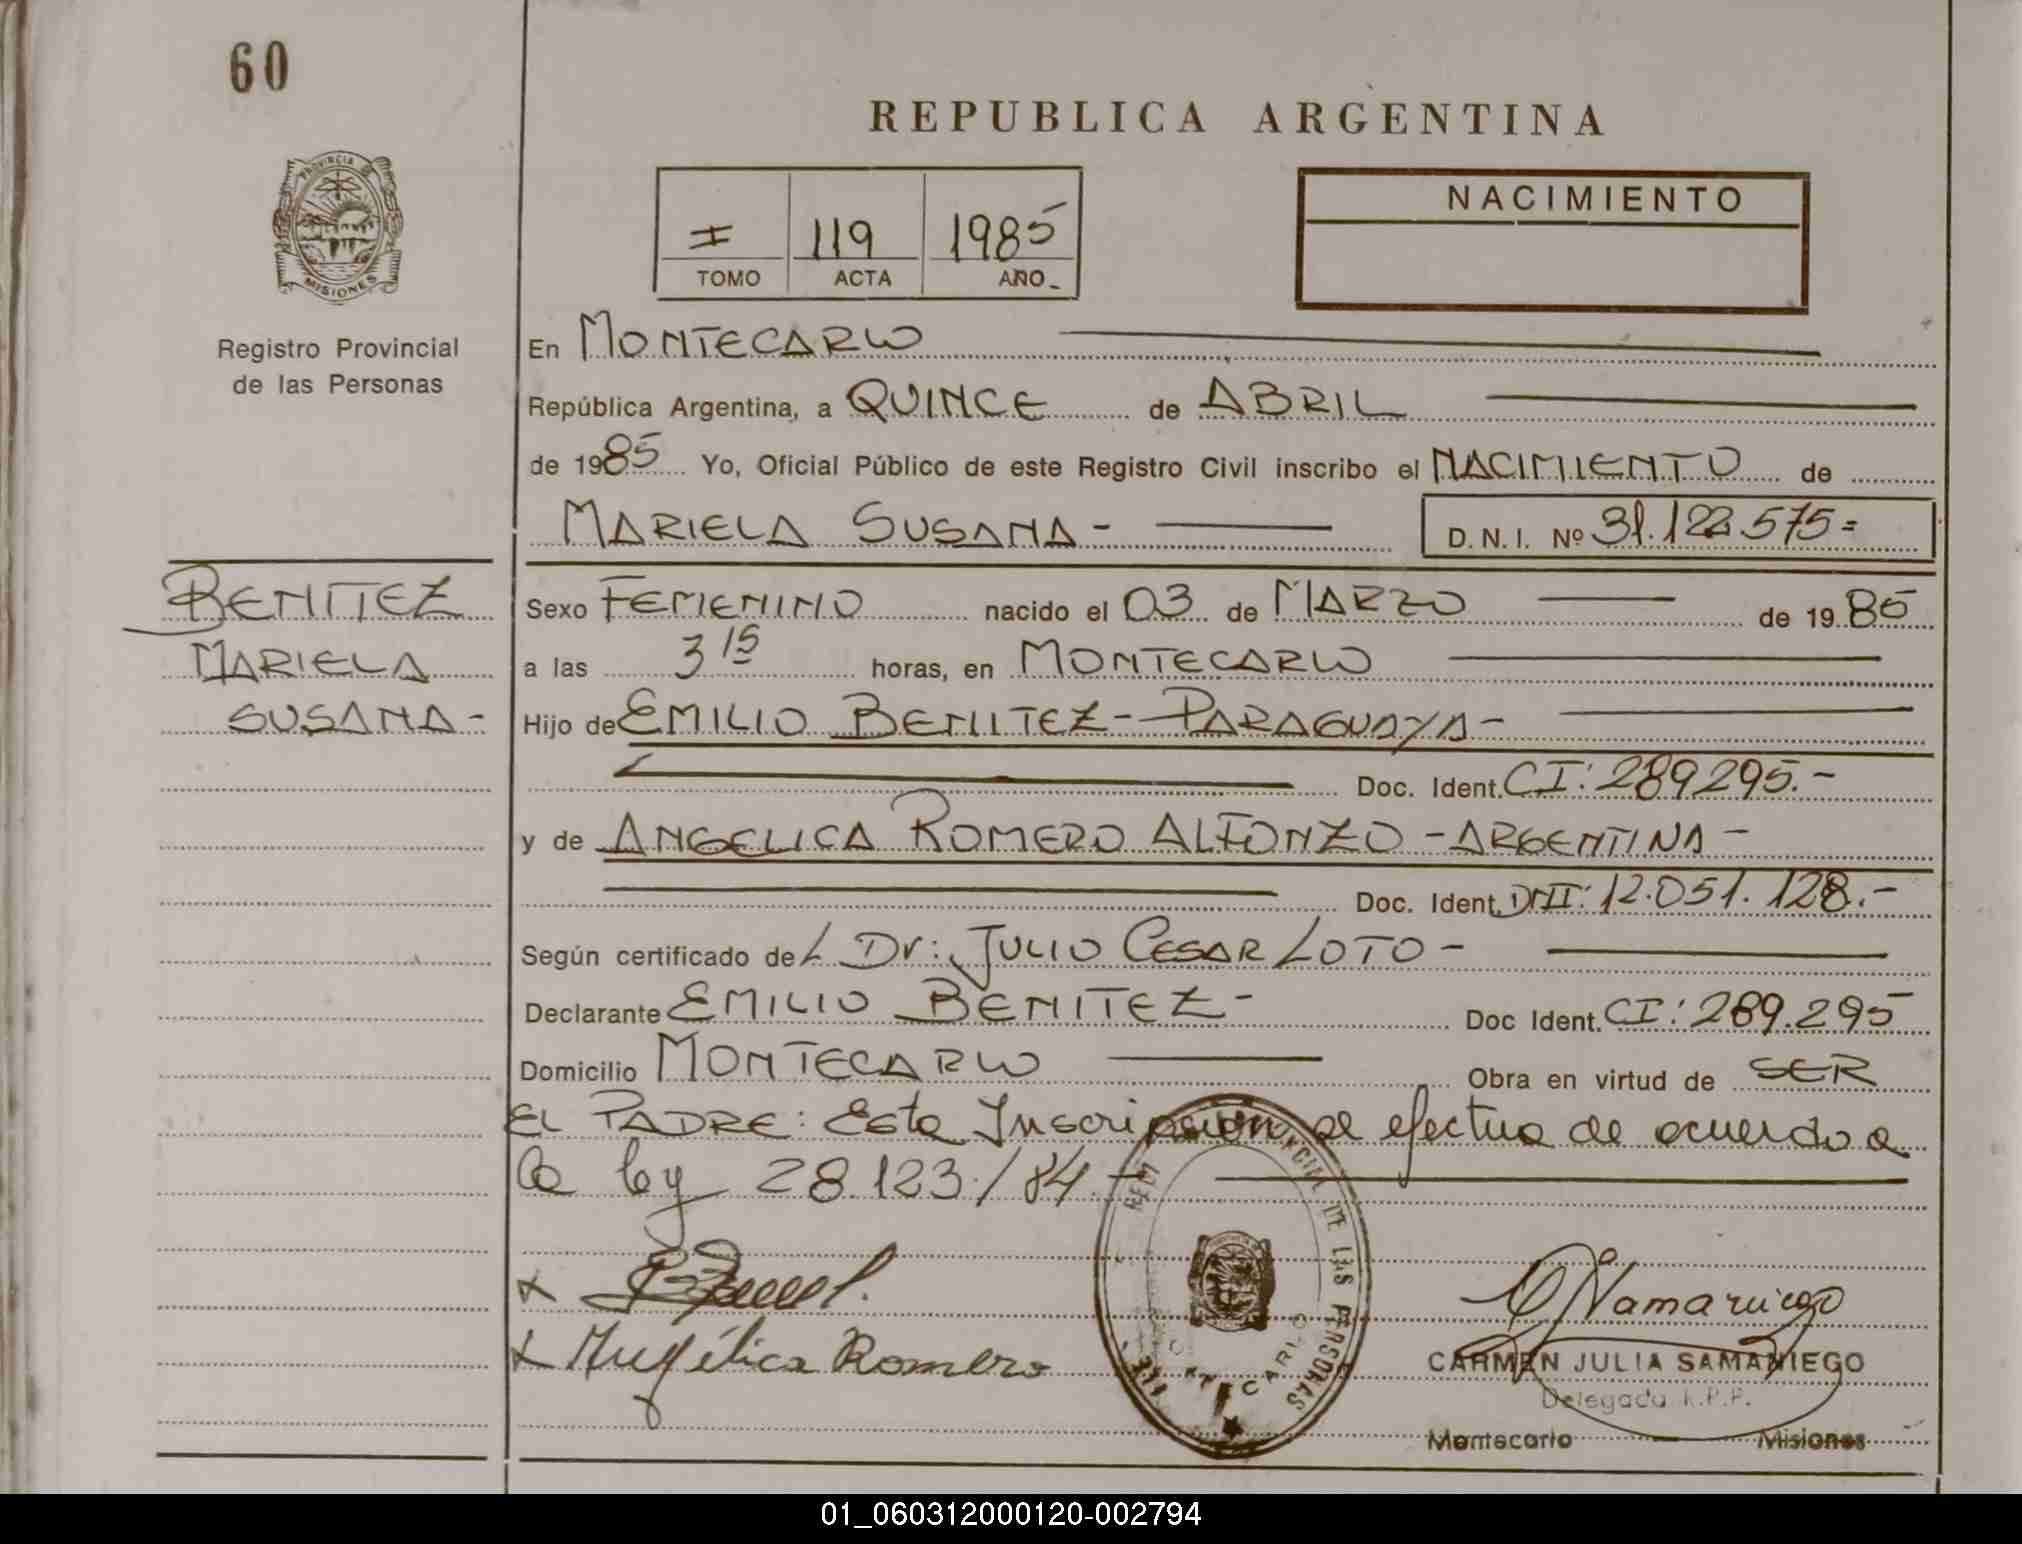 60
REPUBLICA ARGENTINA
PROVINCIA DE
MISIONES
I 119 1985
TOMO ACTA AÑO
NACIMIENTO
Registro Provincial
de las Personas
En MONTECARLO
República Argentina, a QUINCE de ABRIL
de 1985 Yo, Oficial Público de este Registro Civil inscribo el NACIMIENTO de
MARIELA SUSANA - D.N.I. Nº 31.122.575=
BENITEZ
MARIELA
SUSANA -
Sexo FEMENINO nacido el 03 de MARZO de 1985
a las 3 15 horas, en MONTECARLO
Hijo de EMILIO BENITEZ - PARAGUAYA -
Doc. Ident. CI: 289295.-
y de ANGELICA ROMERO ALFONZO - ARGENTINA -
Doc. Ident. DNI: 12.051.128.-
Según certificado de L Dr: JULIO CESAR LOTO -
Declarante EMILIO BENITEZ - Doc Ident. CI: 289.295
Domicilio MONTECARLO Obra en virtud de SER
EL PADRE: Esta Inscripcion se efectua de acuerdo a
la ley 28.123./84.-
x
x Angélica Romero
CARMEN JULIA SAMANIEGO
Delegada R.P.P.
Montecarlo Misiones
DE LAS PERSONAS
MONTECARLO
01_060312000120-002794